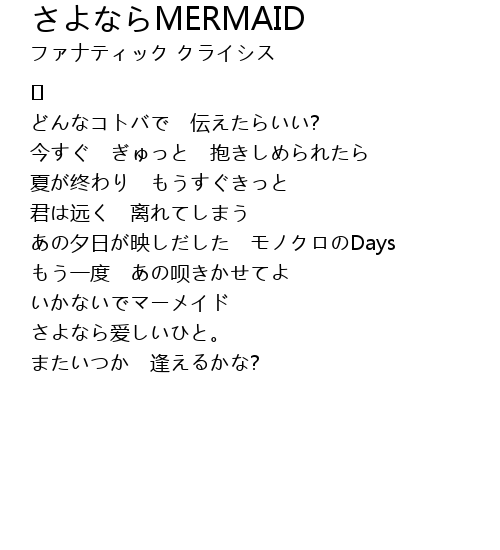 さよならMERMAID
ファナティック クライシス
どんなコトバで　伝えたらいい?
今すぐ　ぎゅっと　抱きしめられたら
夏が终わり　もうすぐきっと
君は远く　离れてしまう
あの夕日が映しだした　モノクロのDays
もう一度　あの呗きかせてよ
いかないでマーメイド
さよなら爱しいひと。
またいつか　逢えるかな?